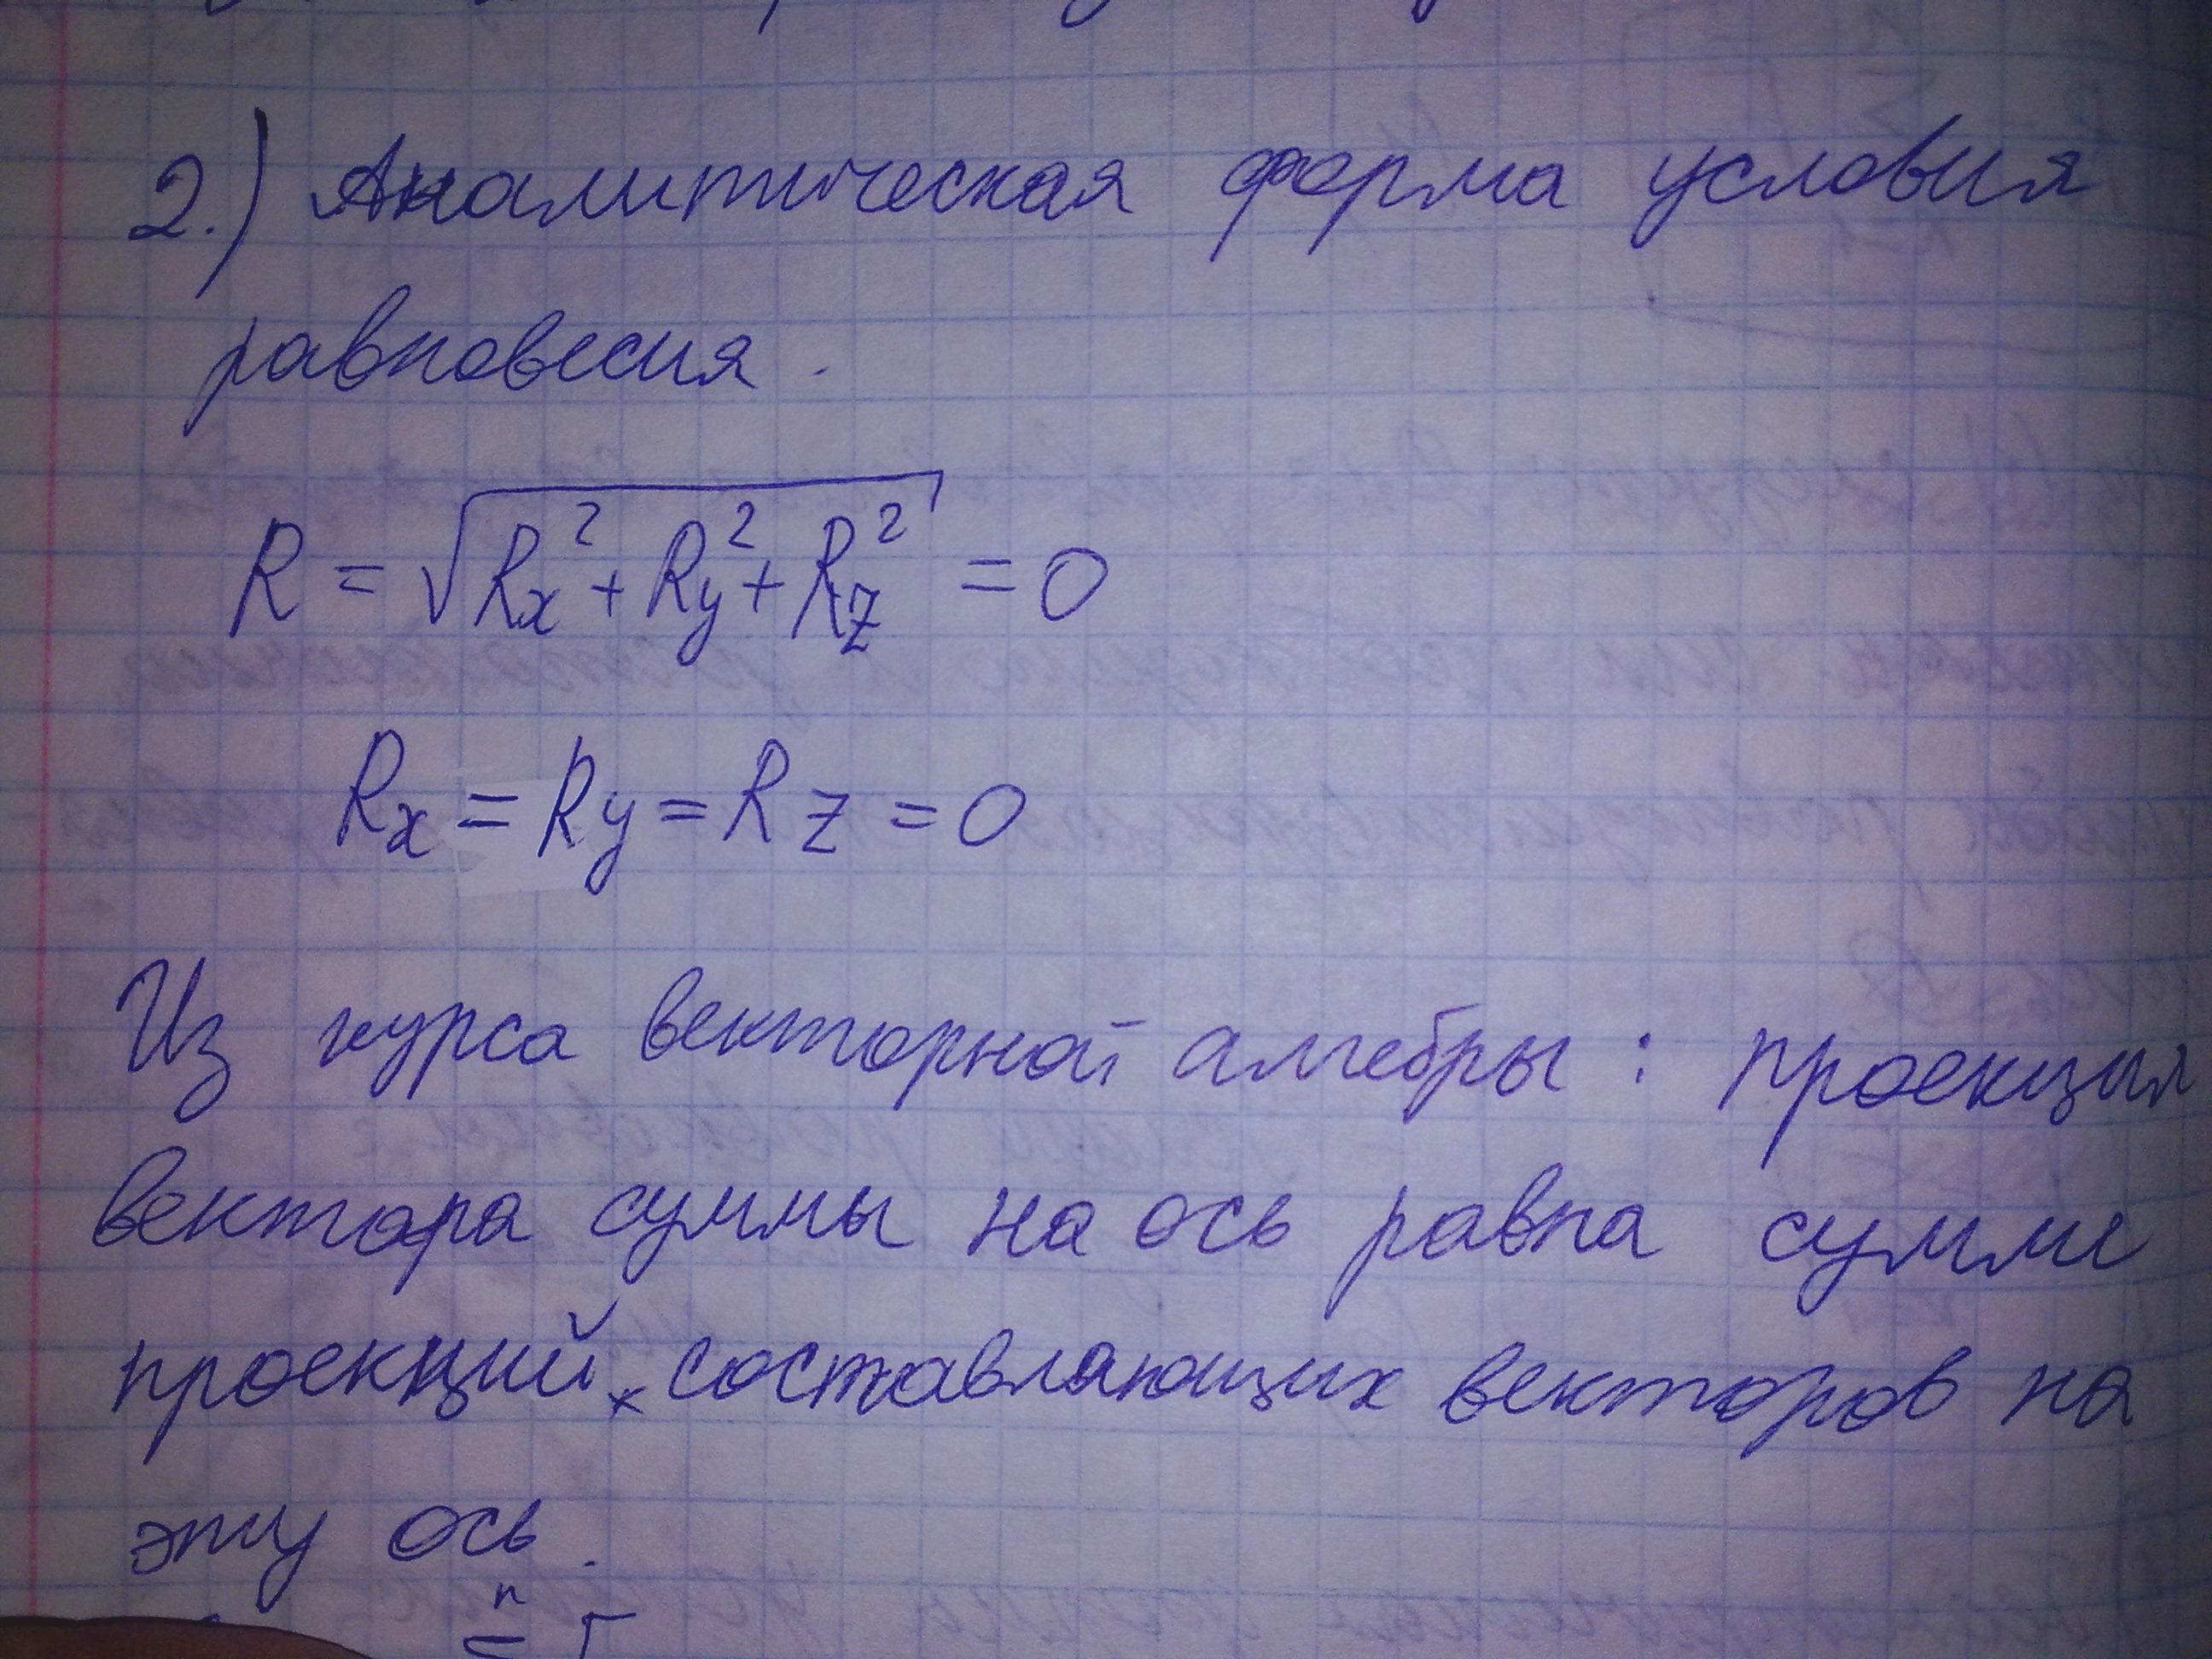 2.) Аналитическая форма условия
равновесия.
R = √Rx² + Ry² + Rz² = 0
Rx = Ry = Rz = 0
Из курса векторной алгебры: проекция
вектора суммы на ось равна сумме
проекций составляющих векторов на
эту ось.
n